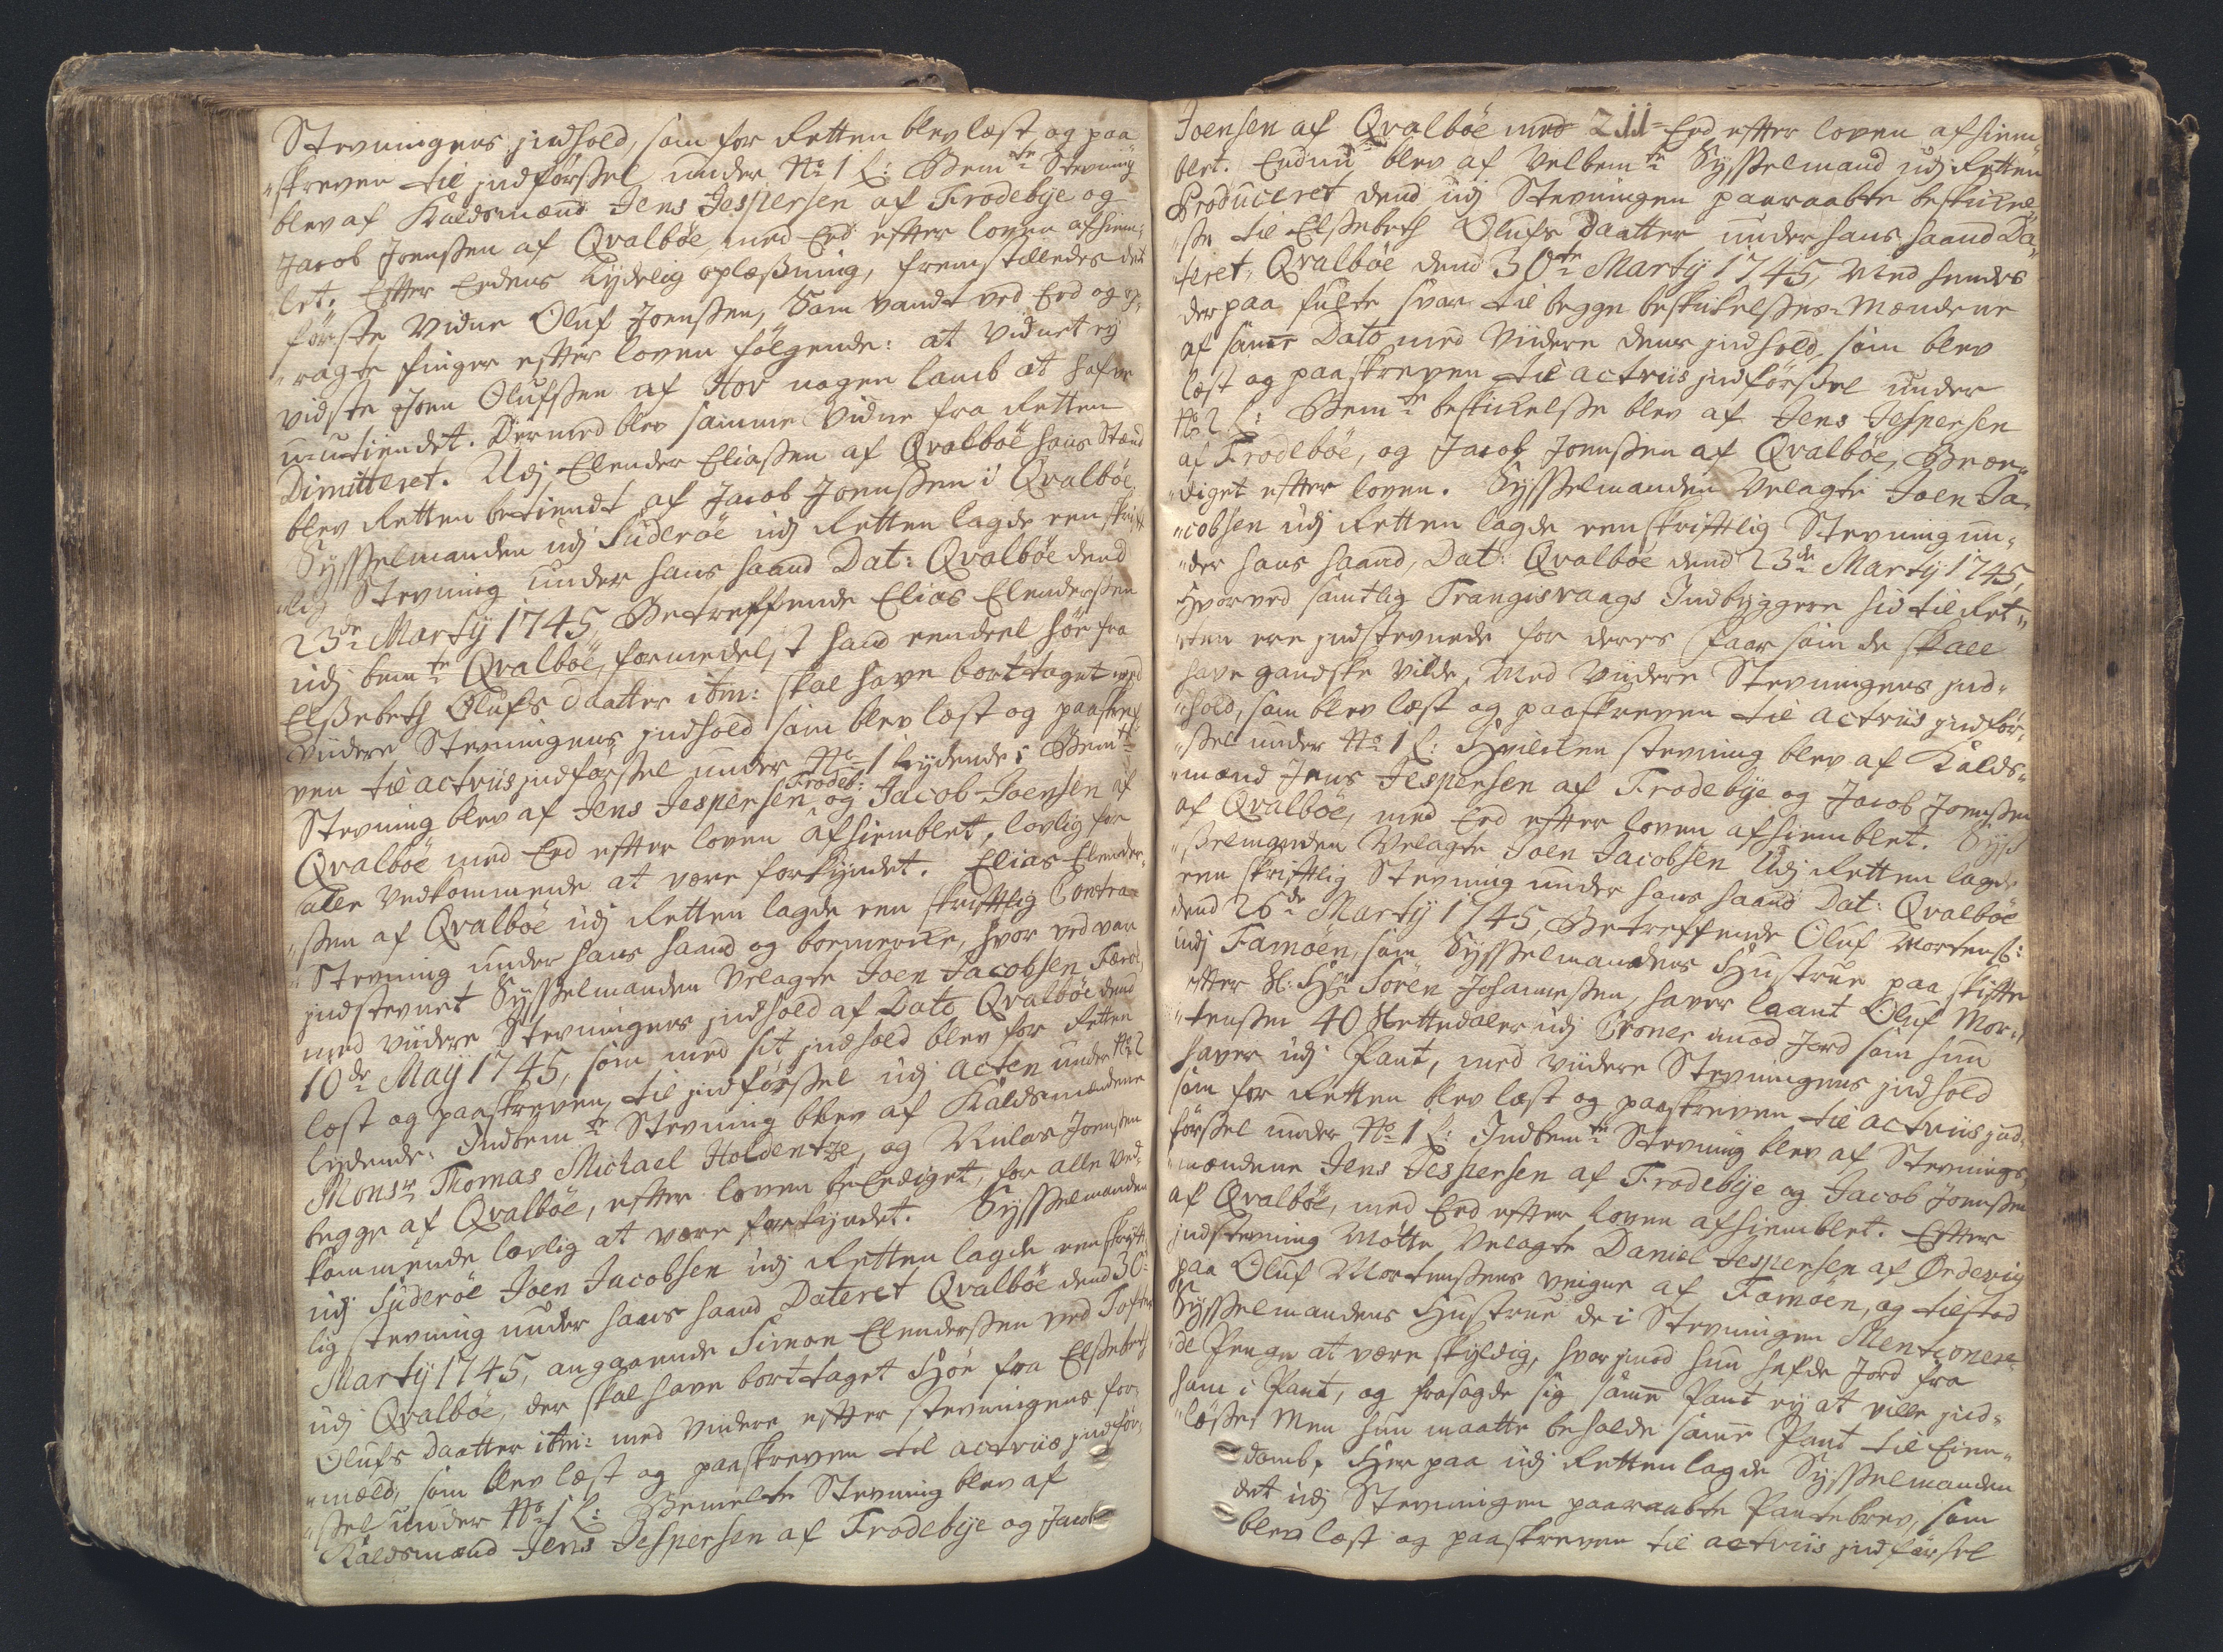 Stevningens jndhold, som for Retten blev læst og paa
„skreven til jndførssel under No 1 L: Bemte Stevning
blev af Kaldsmænd Jens Jespersen af Frodebye og
Jacob Joenssen af Qvalböe, med Eed efter loven afhiem„
let. Efter Eedens tydelig oplæssning, fremstilledes det
förste Vidne Oluf Joenssen, som vandt ved Eed og op„
„ragte finger efter loven fölgende: at vidnet ej
vidste Joen Olufssen af Hov nogen lamb at hafve
u-utiendet. Dermed blev samme Vidne fra Retten
Dimitteret. Udj Elender Eliassen af Qvalböe hans Stæd
blev Retten betiendt af Jacob Joenssen i Qvalböe.
Sysselmanden udj Suderöe udj Retten lagde een skrift
„lig Stevning under hans haand Dat: Qvalböe dend
23de Martij 1745 Betreffende Elias Elenderssen
udj bemte Qvalböe, formedelst hand eendeel höe fra
Elssebeth Olufs daatter ibm: skal have borttaget med
viidere Stevningens jndhold som blev læst og paaskre„
ven til actens jndførssel under No 1 Lydende: Bemte
Frodeb:
Stevning blev af Jens Jespersen og Jacob Joensen af
Qvalböe med Eed efter loven afhiemblet, lovlig for
alle Vedkommende at være forkyndet. Elias Elender„
„ssen af Qvalböe udj Retten lagde een skriftlig Contra
„Stevning under hans haand og boemercke, hvor ved var
jndstevnet Sysselmanden Velagte Joen Jacobsen
med viidere Stevningens jndhold af Dato Qvalböe dend
10de Maij 1745, som med sit jndhold blev for Retten
læst og paaskreven, til jndførssel udj acten under No 2
lydende: Indbemte Stevning blev af Kaldsmændene
Monsr Thomas Michael Holdentze, og Niclas Joenssen
begge af Qvalböe, efter loven beEediget, for alle Ved„
kommende lovlig at være forkyndet. Sysselmanden
udj Suderöe Joen Jacobsen udj Retten lagde een skrift
lig stevning under hans haand Dateret Qvalböe dend 30:
Martij 1745, anggaaende Simon Elenderssen ved Toften
udj Qvalböe, der skal have borttaget Höe fra Elssebeth
Olufs daatter ibm: med Viidere efter stevningens for„
„mæld, som blev læst og paaskreven til actens jndför„
„ssel under No 1 L: Bemelte Stevning blev af
Kaldsmænd Jens Jespersen af Frodebye og Jacob
Joensen af Qvalböe med 211 Eed efter loven afhiem„
blet. Endnu blev af Velbemte Sysselmand udj Retten
Produceret dend udj Stevningen paaraabte beskickel„
„sse til Elssebeth Olufs daatter under hans haand Da„
„teret, Qvalböe dend 30te Martij 1745, Med hendes
derpaa fulte svar til begge beskickelsses-Mændene
af samme Dato med Viidere dens jndhold, som blev
læst og paaskreven til actens jndførssel under
No 2 L: Bemte beskickelsse blev af Jens Jespersen
af Frodeböe, og Jacob Joenssen af Qvalböe, BeEe„
„diget efter loven. Sysselmanden Velagte Joen Ja„
„cobsen udj Retten lagde een skriftlig Stevning un„
„der hans haand, Dat: Qvalböe dend 23de Martij 1745,
Hvorved samtlig Trangisvaags Indbyggere hid til Ret„
„ten ere jndstevnede for deres faar som de skall
have gandske vilde, Med Viidere Stevningens jnd„
„hold, som blev læst og paaskreven til actens jndför„
„ssel under No 1 L: Hvilcken stevning blev af Kalds„
„mænd Jens Jespersen af Frodebye og Jacob Joenssen
af Qvalböe, med Eed efter loven afhiemblet. Syss
„sselmanden Velagte Joen Jacobsen Udj Retten lagde
een skriftlig Stevning under hans haand Dat: Qvalböe
dend 26de Martij 1745, Betreffende Oluf Mortenss:
udj Famöen, som Sysselmandens Hustrue paa skifte
efter Sl: Hr Sören Johannessen, haver laant Oluf Mor„
„tenssen 40 Slettedaler udj Croner imod Jord som hun
haver udj Pant, med viidere Stevningens jndhold
som for Retten blev læst og paaskreven til actens jnd„
förssel under No 1 L: Indbemte Stevning blev af Stevnings„
„mændene Jens Jespersen af Frodebye og Jacob Joenssen
af Qvalböe, med Eed efter loven afhiemblet. Efter
jndstevning Mötte Velagte Daniel Jespersen af Ördevig
paa Oluf Mortenssens veigne af Famöen, og tilstod
Sysselmandens Hustrue de i Stevningen Mentioner„
de Penge at være skyldig, hvorjmod hun hafde Jord fra
ham i Pant, og frasagde sig samme Pant ej at ville jnd„
„lösse, Men hun maatte beholde samme Pant til Eien„
domb, Her paa udj Retten lagde Sysselmanden
det udj Stevningen paaraabte Pantebrev, som
blev læst og paaskreven til actens jndførsel